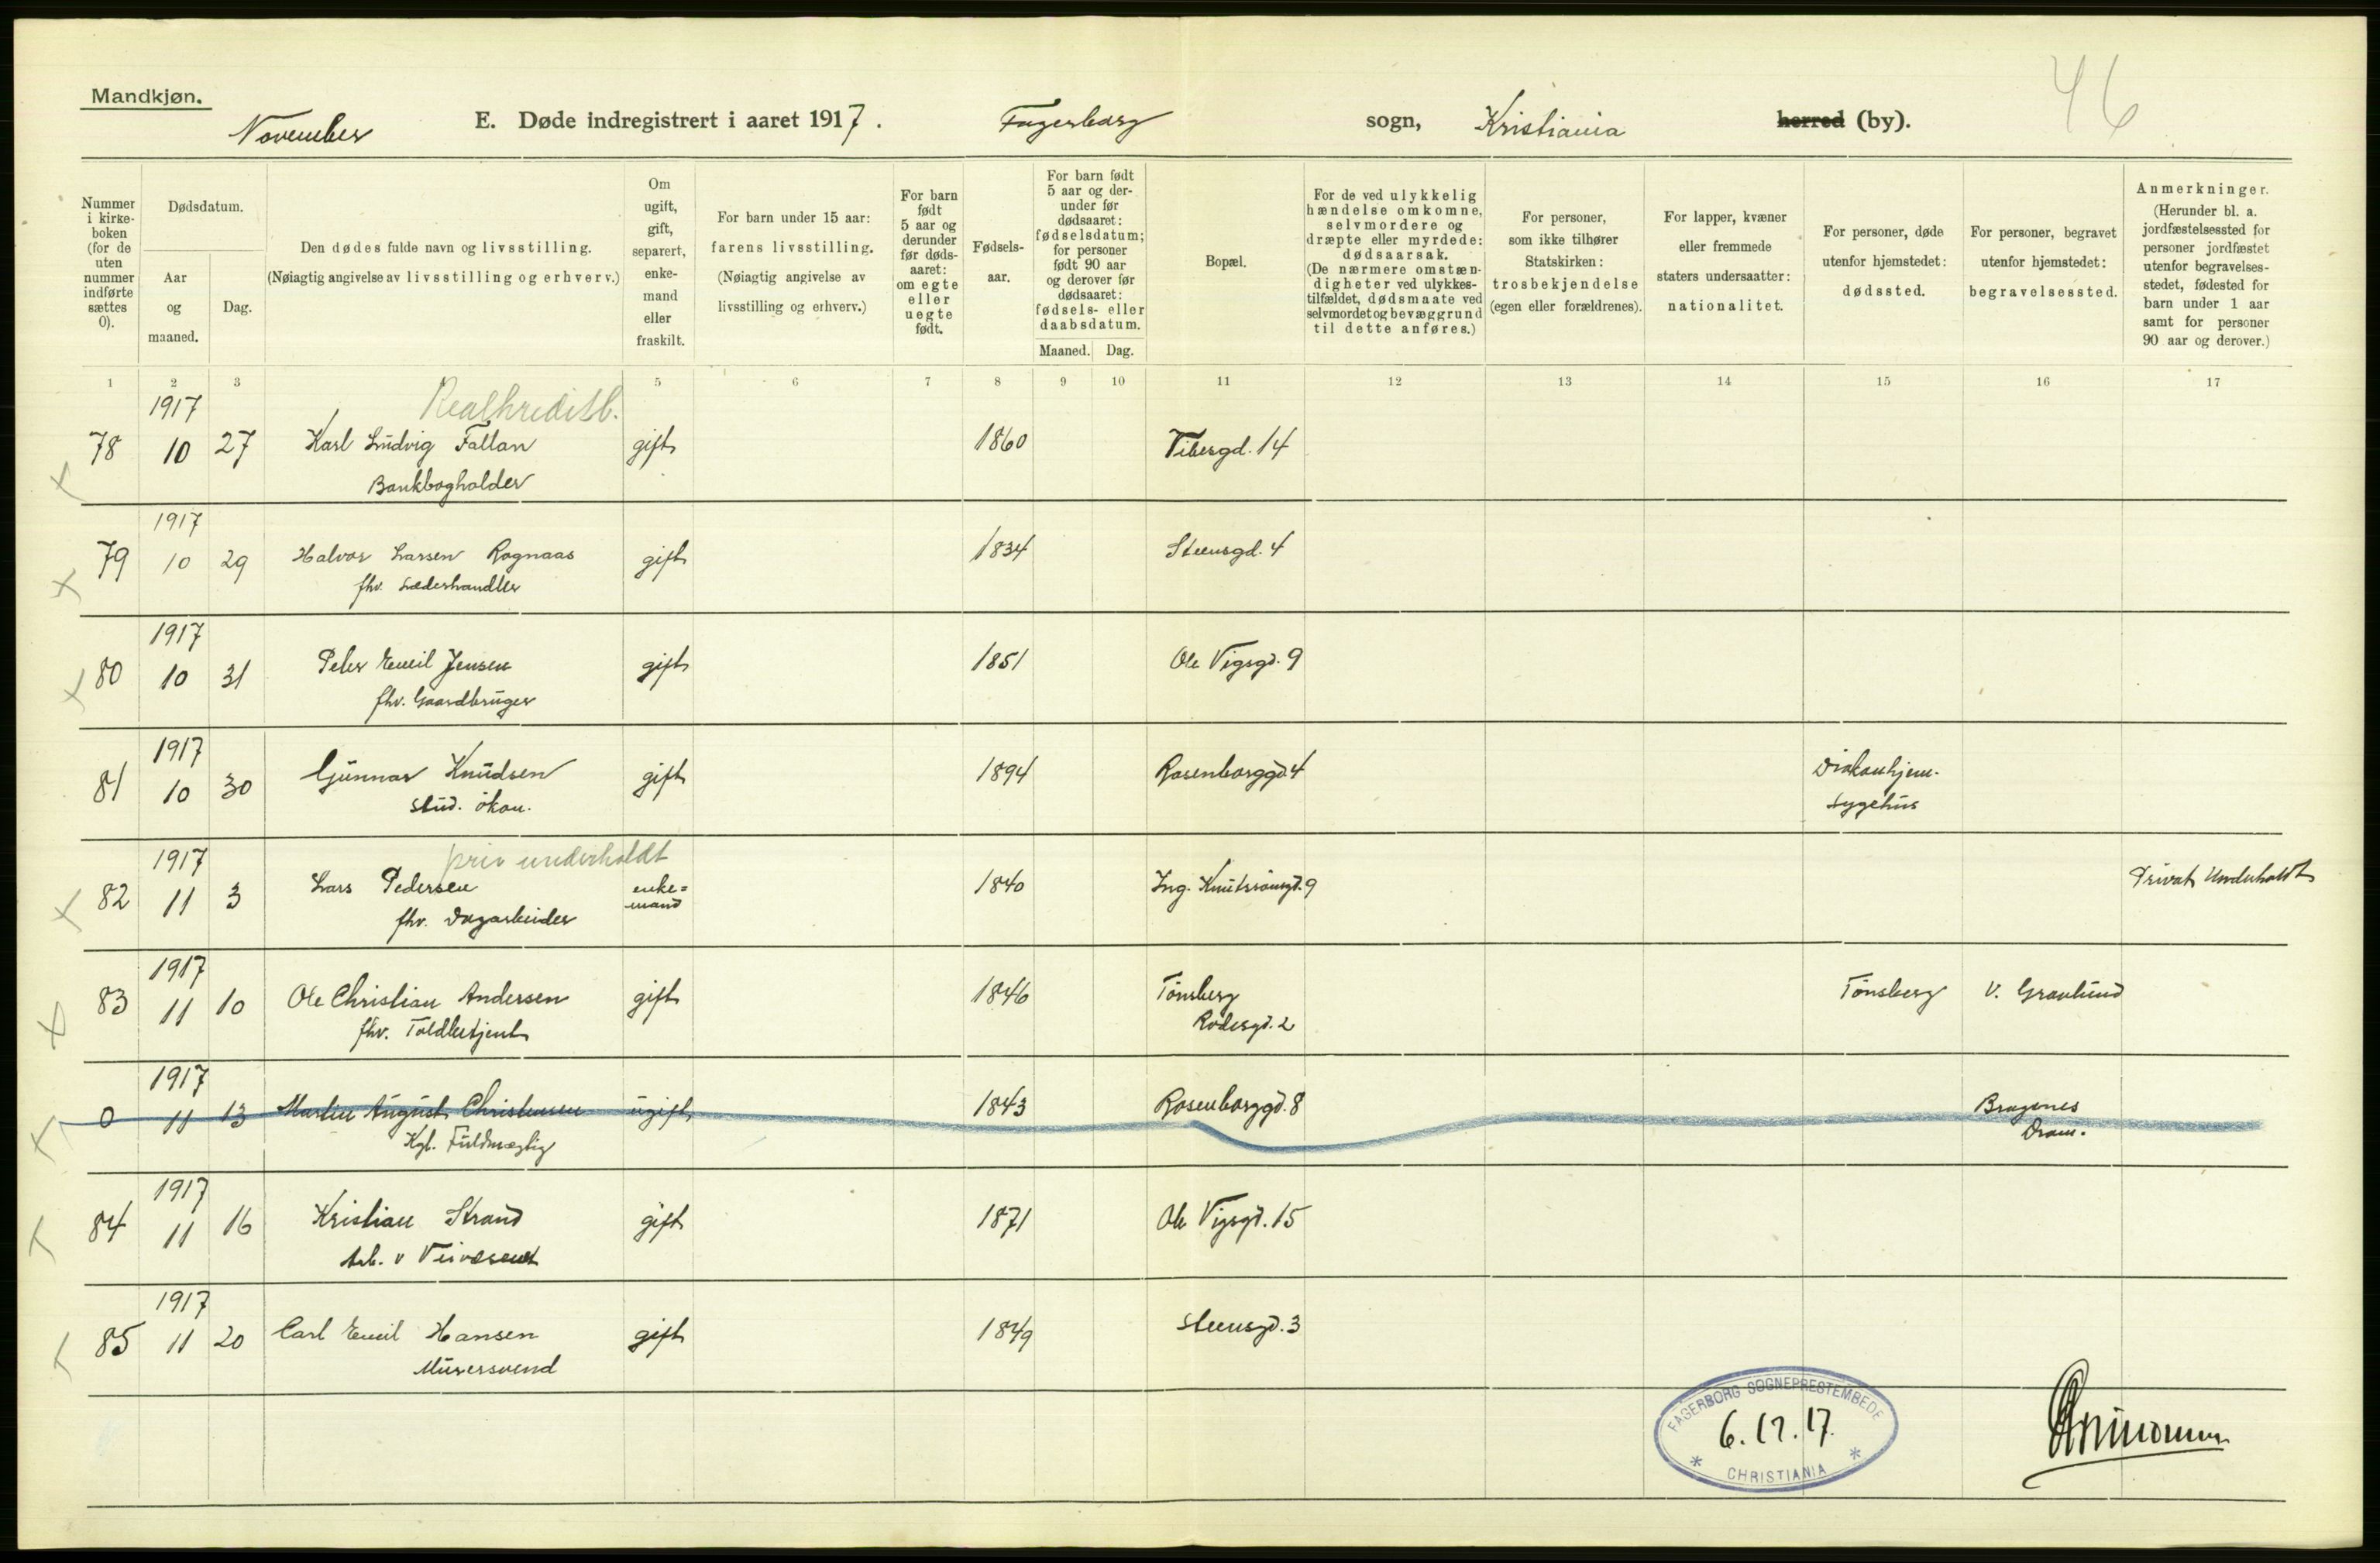 46
Mandkjøn.
November E. Døde indregistrert i aaret 1917. Fagerborg sogn, Kristiania herred (by).
Nummer i kirkeboken (for de uten nummer indførte sættes 0).
Dødsdatum.
Aar og maaned.
Dag.
Den dødes fulde navn og livsstilling.
(Nøiagtig angivelse av livsstilling og erhverv.)
Om ugift, gift, separert, enkemand eller fraskilt.
For barn under 15 aar:
farens livsstilling.
(Nøiagtig angivelse av
livsstilling og erhverv.)
For barn født 5 aar og derunder før dødsaaret: om egte eller uegte født.
Fødselsaar.
For barn født 5 aar og derunder før dødsaaret: fødselsdatum; for personer født 90 aar og derover før dødsaaret: fødsels- eller daabsdatum.
Maaned. Dag.
Bopæl.
For de ved ulykkelig hændelse omkomne, selvmordere og dræpte eller myrdede: dødsaarsak. (De nærmere omstændigheter ved ulykkestilfældet, dødsmaate ved selvmordet og bevæggrund til dette anføres.)
For personer, som ikke tilhører Statskirken: trosbekjendelse (egen eller forældrenes).
For lapper, kvæner eller fremmede staters undersaatter: nationalitet.
For personer, døde utenfor hjemstedet: dødssted.
For personer, begravet utenfor hjemstedet: begravelsessted.
Anmerkninger. (Herunder bl. a. jordfæstelsessted for personer jordfæstet utenfor begravelsesstedet, fødested for barn under 1 aar samt for personer 90 aar og derover.)
1 2 3 5 6 7 8 9 10 11 12 13 14 15 16 17
1917 Realkreditb.
78 10 27 Karl Ludvig Fallan gift 1860 Vibesgd. 14
Bankbogholder
1917
79 10 29 Halvor Larsen Rognaas gift 1834 Steensgd. 4
fhv. Læderhandler
1917
80 10 31 Peter Emil Jensen gift 1851 Ole Vigsgd. 9
fhv. Gaardbruger
1917
81 10 30 Gunnar Knudsen gift 1894 Rosenborggd 4 Diakonhjem.
stud. økon. Sygehus
1917 priv underholdt
82 11 3 Lars Pedersen enke= 1840 Ing. Knutssønsgd. 9 Privat Underholdt
fhv. Dagarbeider mand
1917
83 11 10 Ole Christian Andersen gift 1846 Tönsberg Tönsberg V. Gravlund
fhv. Toldbetjent Rodesgd. 2
1917
0 11 13 Martin August Christensen ugift 1843 Rosenborggd. 8 Bragenes
Kgl. Fuldmægtig Dram.
1917
84 11 16 Kristian Strand gift 1871 Ole Vigsgd. 15
Arb. v Veivæsenet
1917
85 11 20 Carl Emil Hansen gift 1849 Steensgd. 3
Murersvend
FAGERBORG SOGNEPRESTEMBEDE
6.12.17.
* CHRISTIANIA *